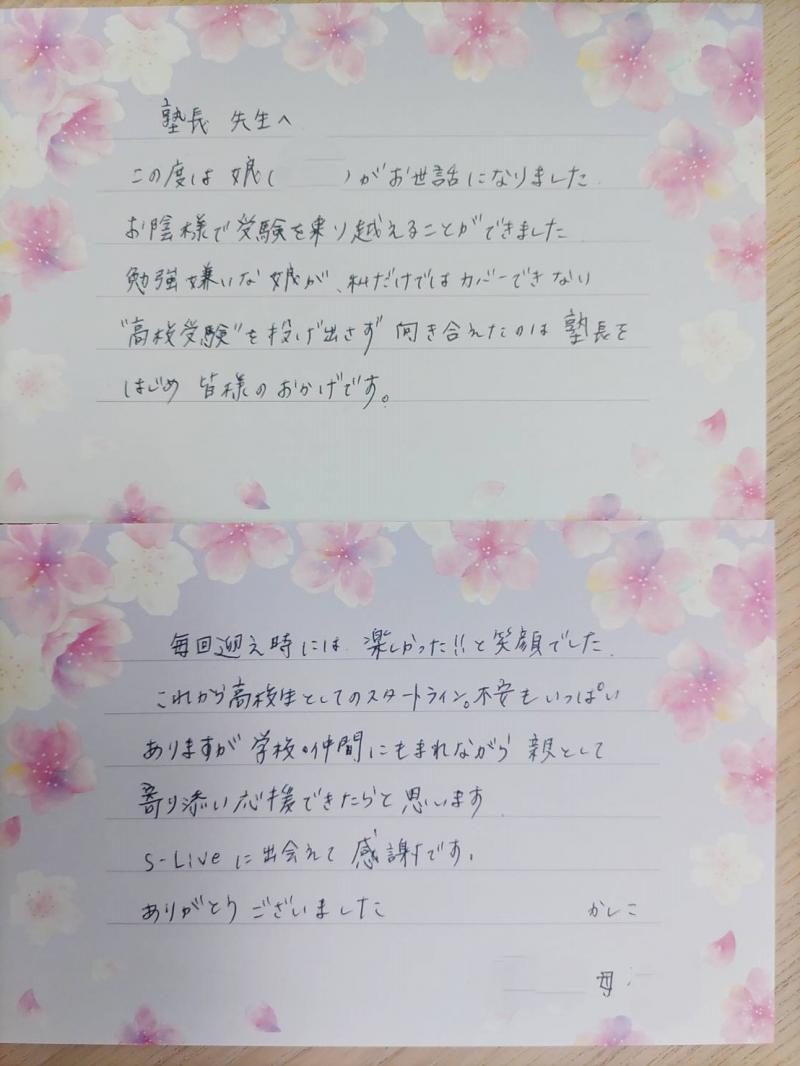 塾長 先生へ
この度は 娘(　　　)がお世話になりました
お陰様で受験を乗り越えることができました
勉強嫌いな娘が、私だけではカバーできない
"高校受験"を投げ出さず 向き合えたのは 塾長を
はじめ 皆様のおかげです。
毎回迎え時には 楽しかった!!と笑顔でした
これから高校生としてのスタートライン。不安もいっぱい
ありますが 学校・仲間にもまれながら 親として
寄り添い応援できたらと思います
S-Liveに出会えて 感謝です。
ありがとうございました かしこ
母